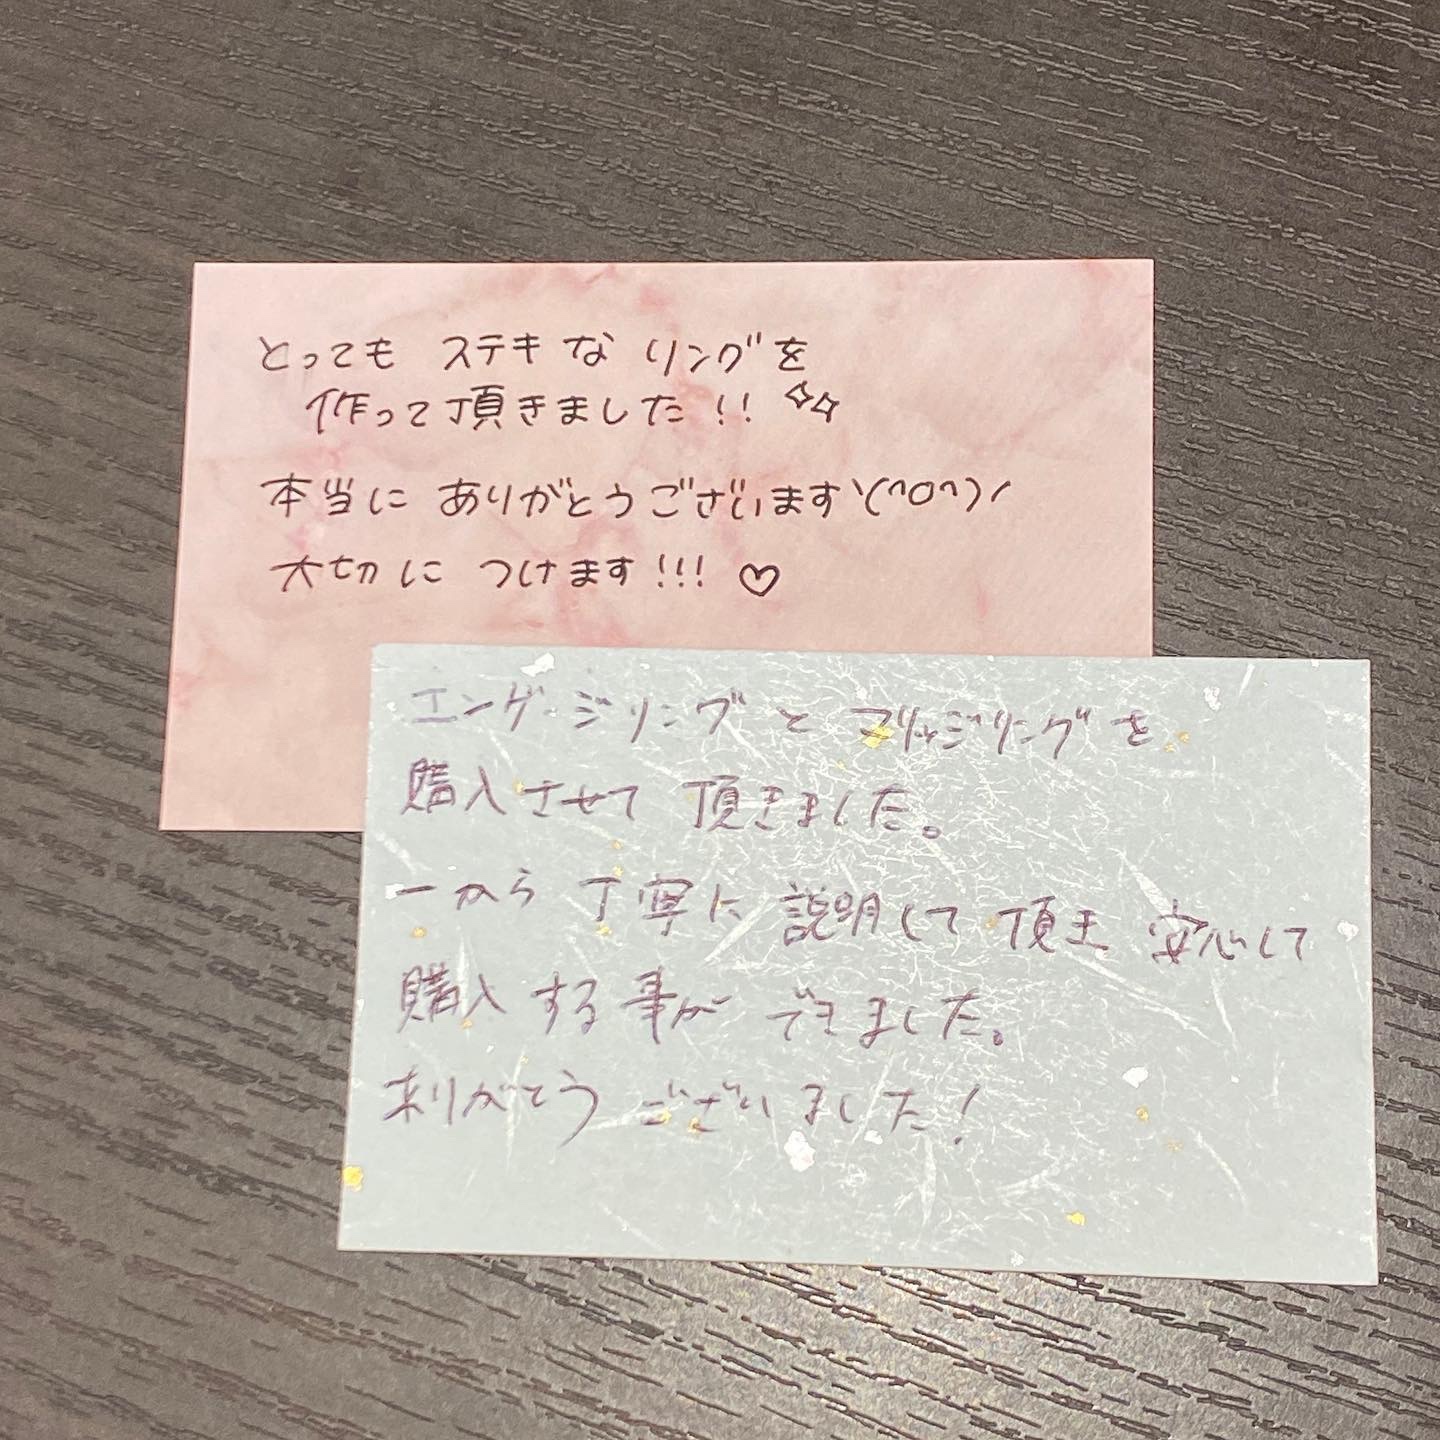 とっても ステキな リングを
作って頂きました!!
本当に ありがとうございます\(^O^)/
大切に つけます!!! ♡
エンゲージリングと マリッジリングを
購入させて 頂きました。
一から 丁寧に 説明して 頂き 安心して
購入する事が できました。
ありがとう ございました!